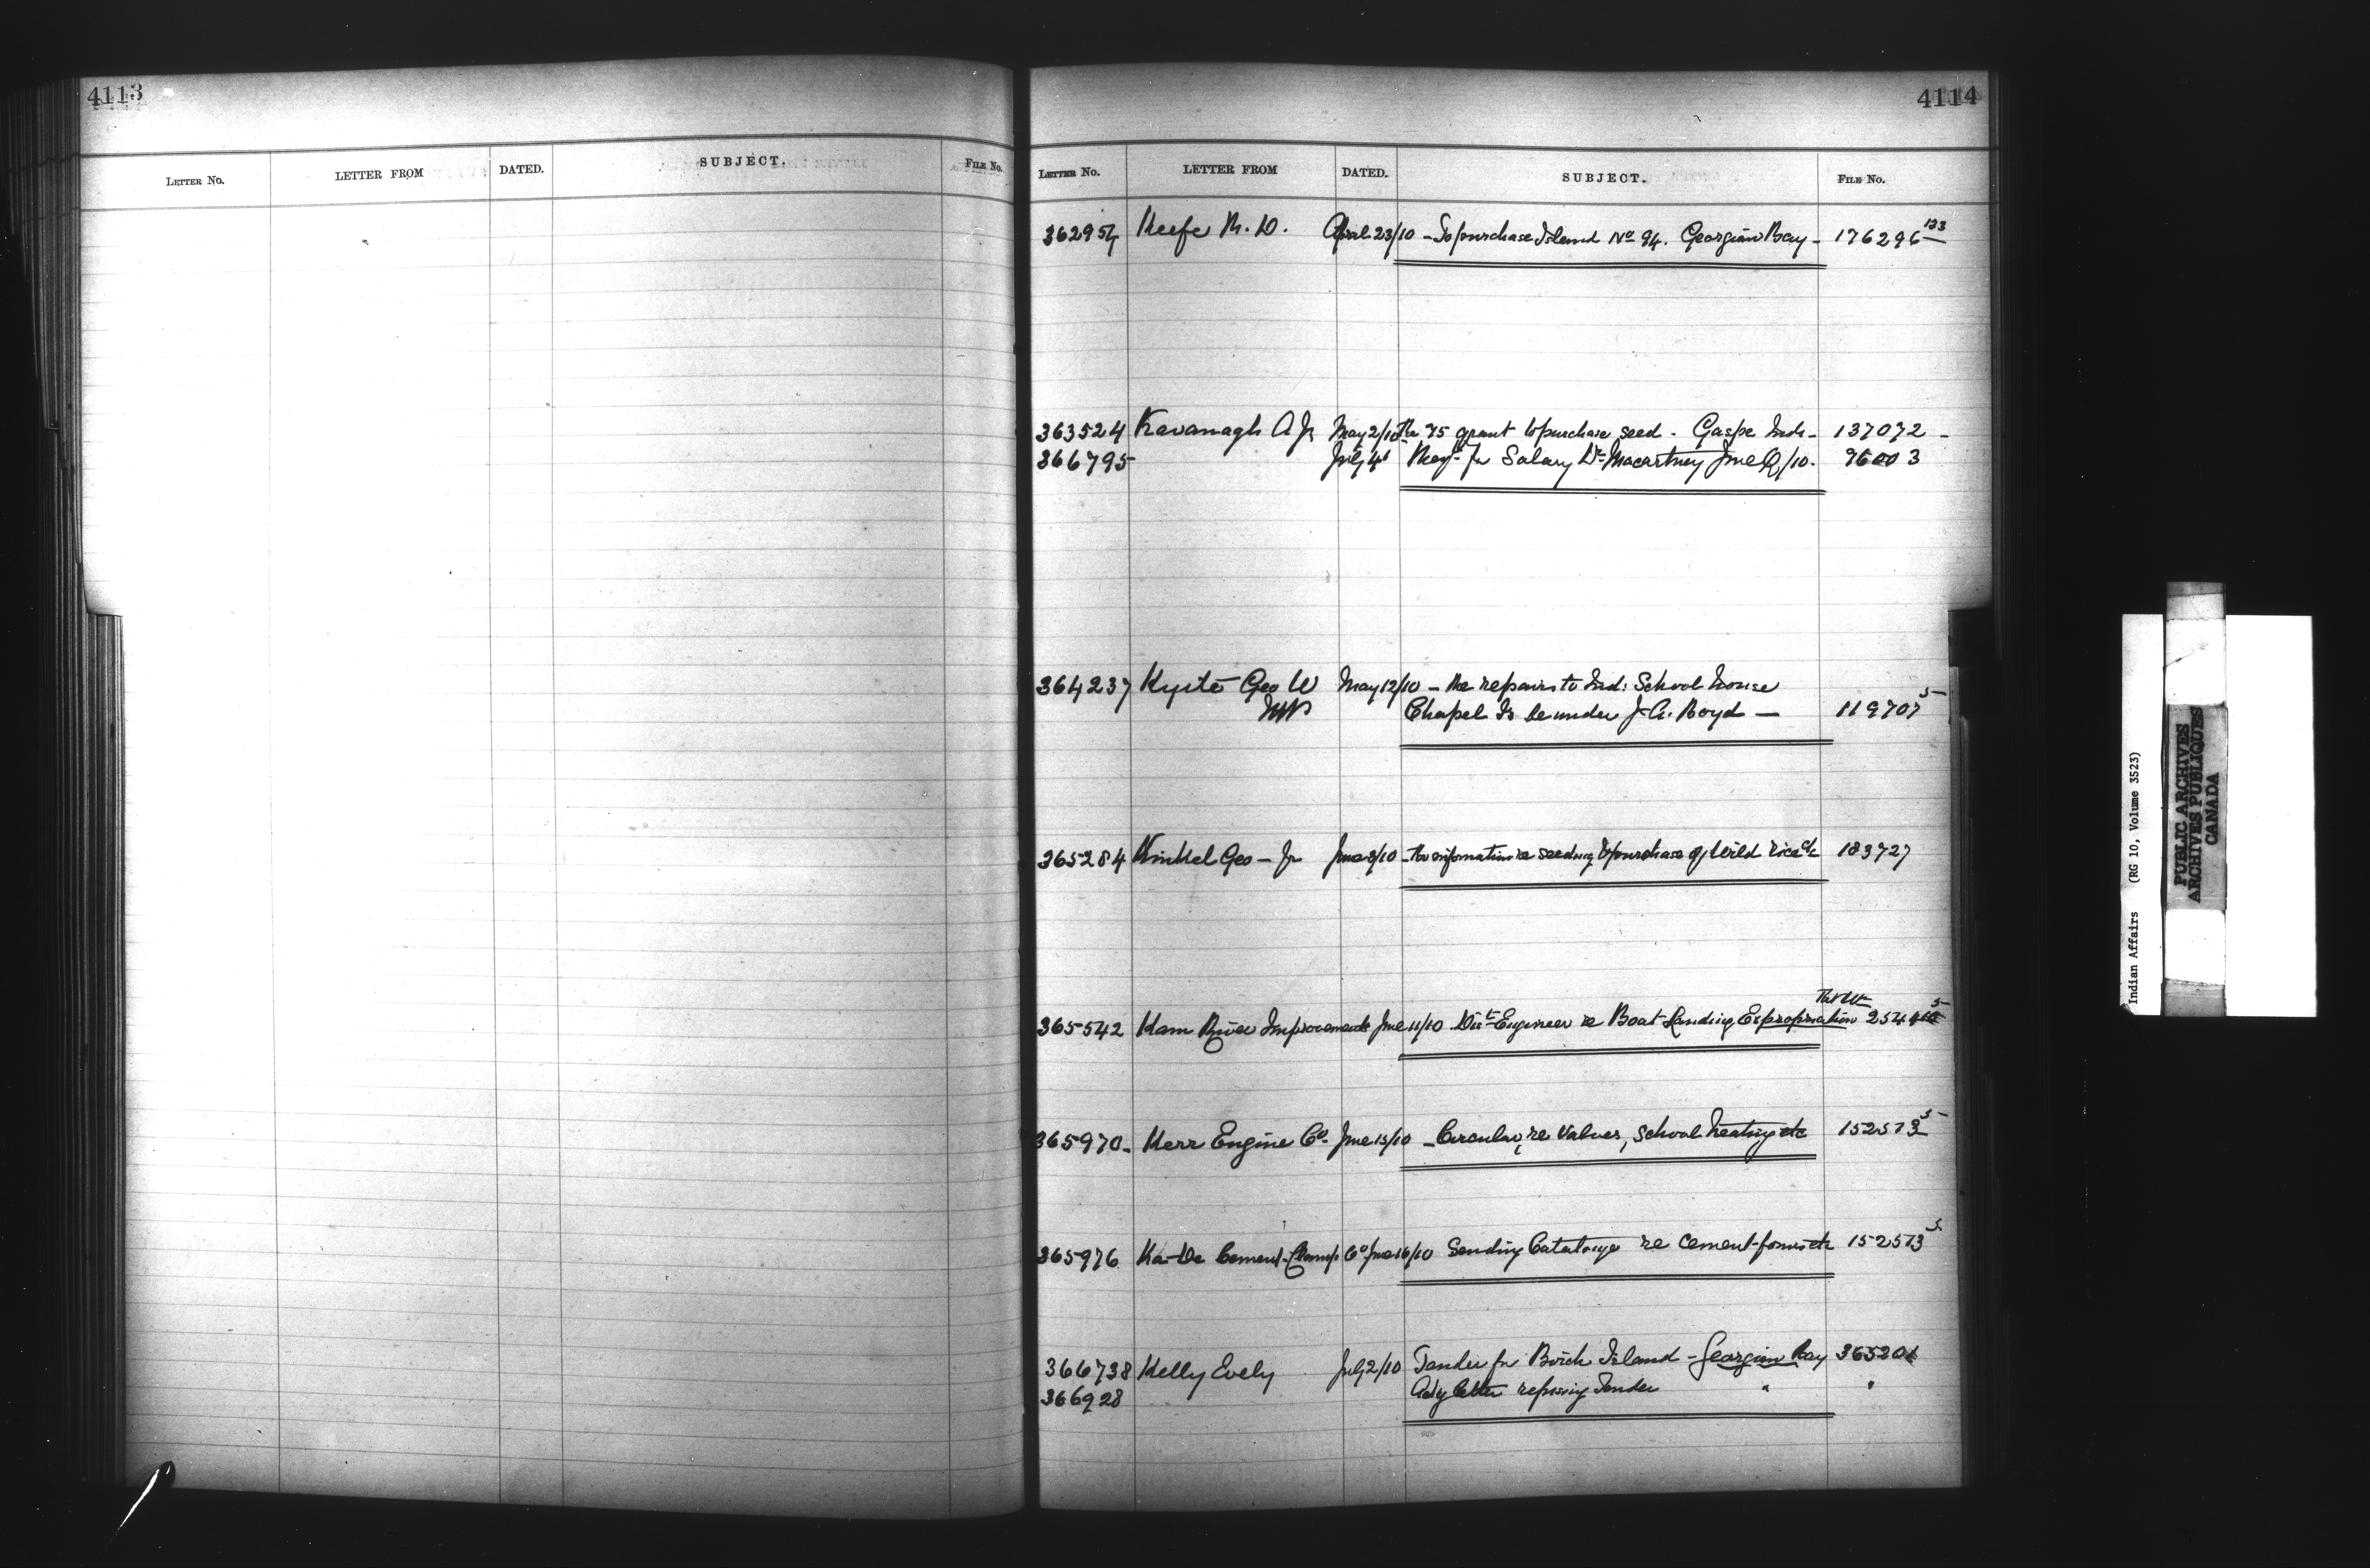 4113
LETTER No. LETTER FROM DATED. SUBJECT. FILE No.
4114
LETTER No. LETTER FROM DATED. SUBJECT. FILE No.
Keefe M. D. April 23/10 - To purchase Island No 94. Georgian Bay - 176296 123
363524 Kavanagh A Jr May 2/10 Re 75 grant to purchase seed - Gaspe Inds - 137072 -
366795 July 4 for Salary Dr Macartney June Q/10. 96003
364237 Kyte Geo W May 12/10 - Re repairs to Ind: School house
MP Chapel To be under J. A. Boyd — 119707 5
365284 Kinkel Geo - Jr June 8/10 - For information re seeding & purchase of Wild Rice &c 183727
365542 Kam River Improvements June 11/10 Dist Engineer re Boat Landing Expropriation
365970 - Kerr Engine Co. June 15/10 - Circular, re Valves, School heating etc 152573 5
365976 Ka-De Cement Clamp Co June 16/10 Sending Catalogue re cement-forms etc 152573 5
366738 Kelly Evely July 2/10 Tender for Birch Island - Georgian Bay 365201
366928 letter refusing Tender " "
Indian Affairs (RG 10, Volume 3523)
PUBLIC ARCHIVES
ARCHIVES PUBLIQUES
CANADA